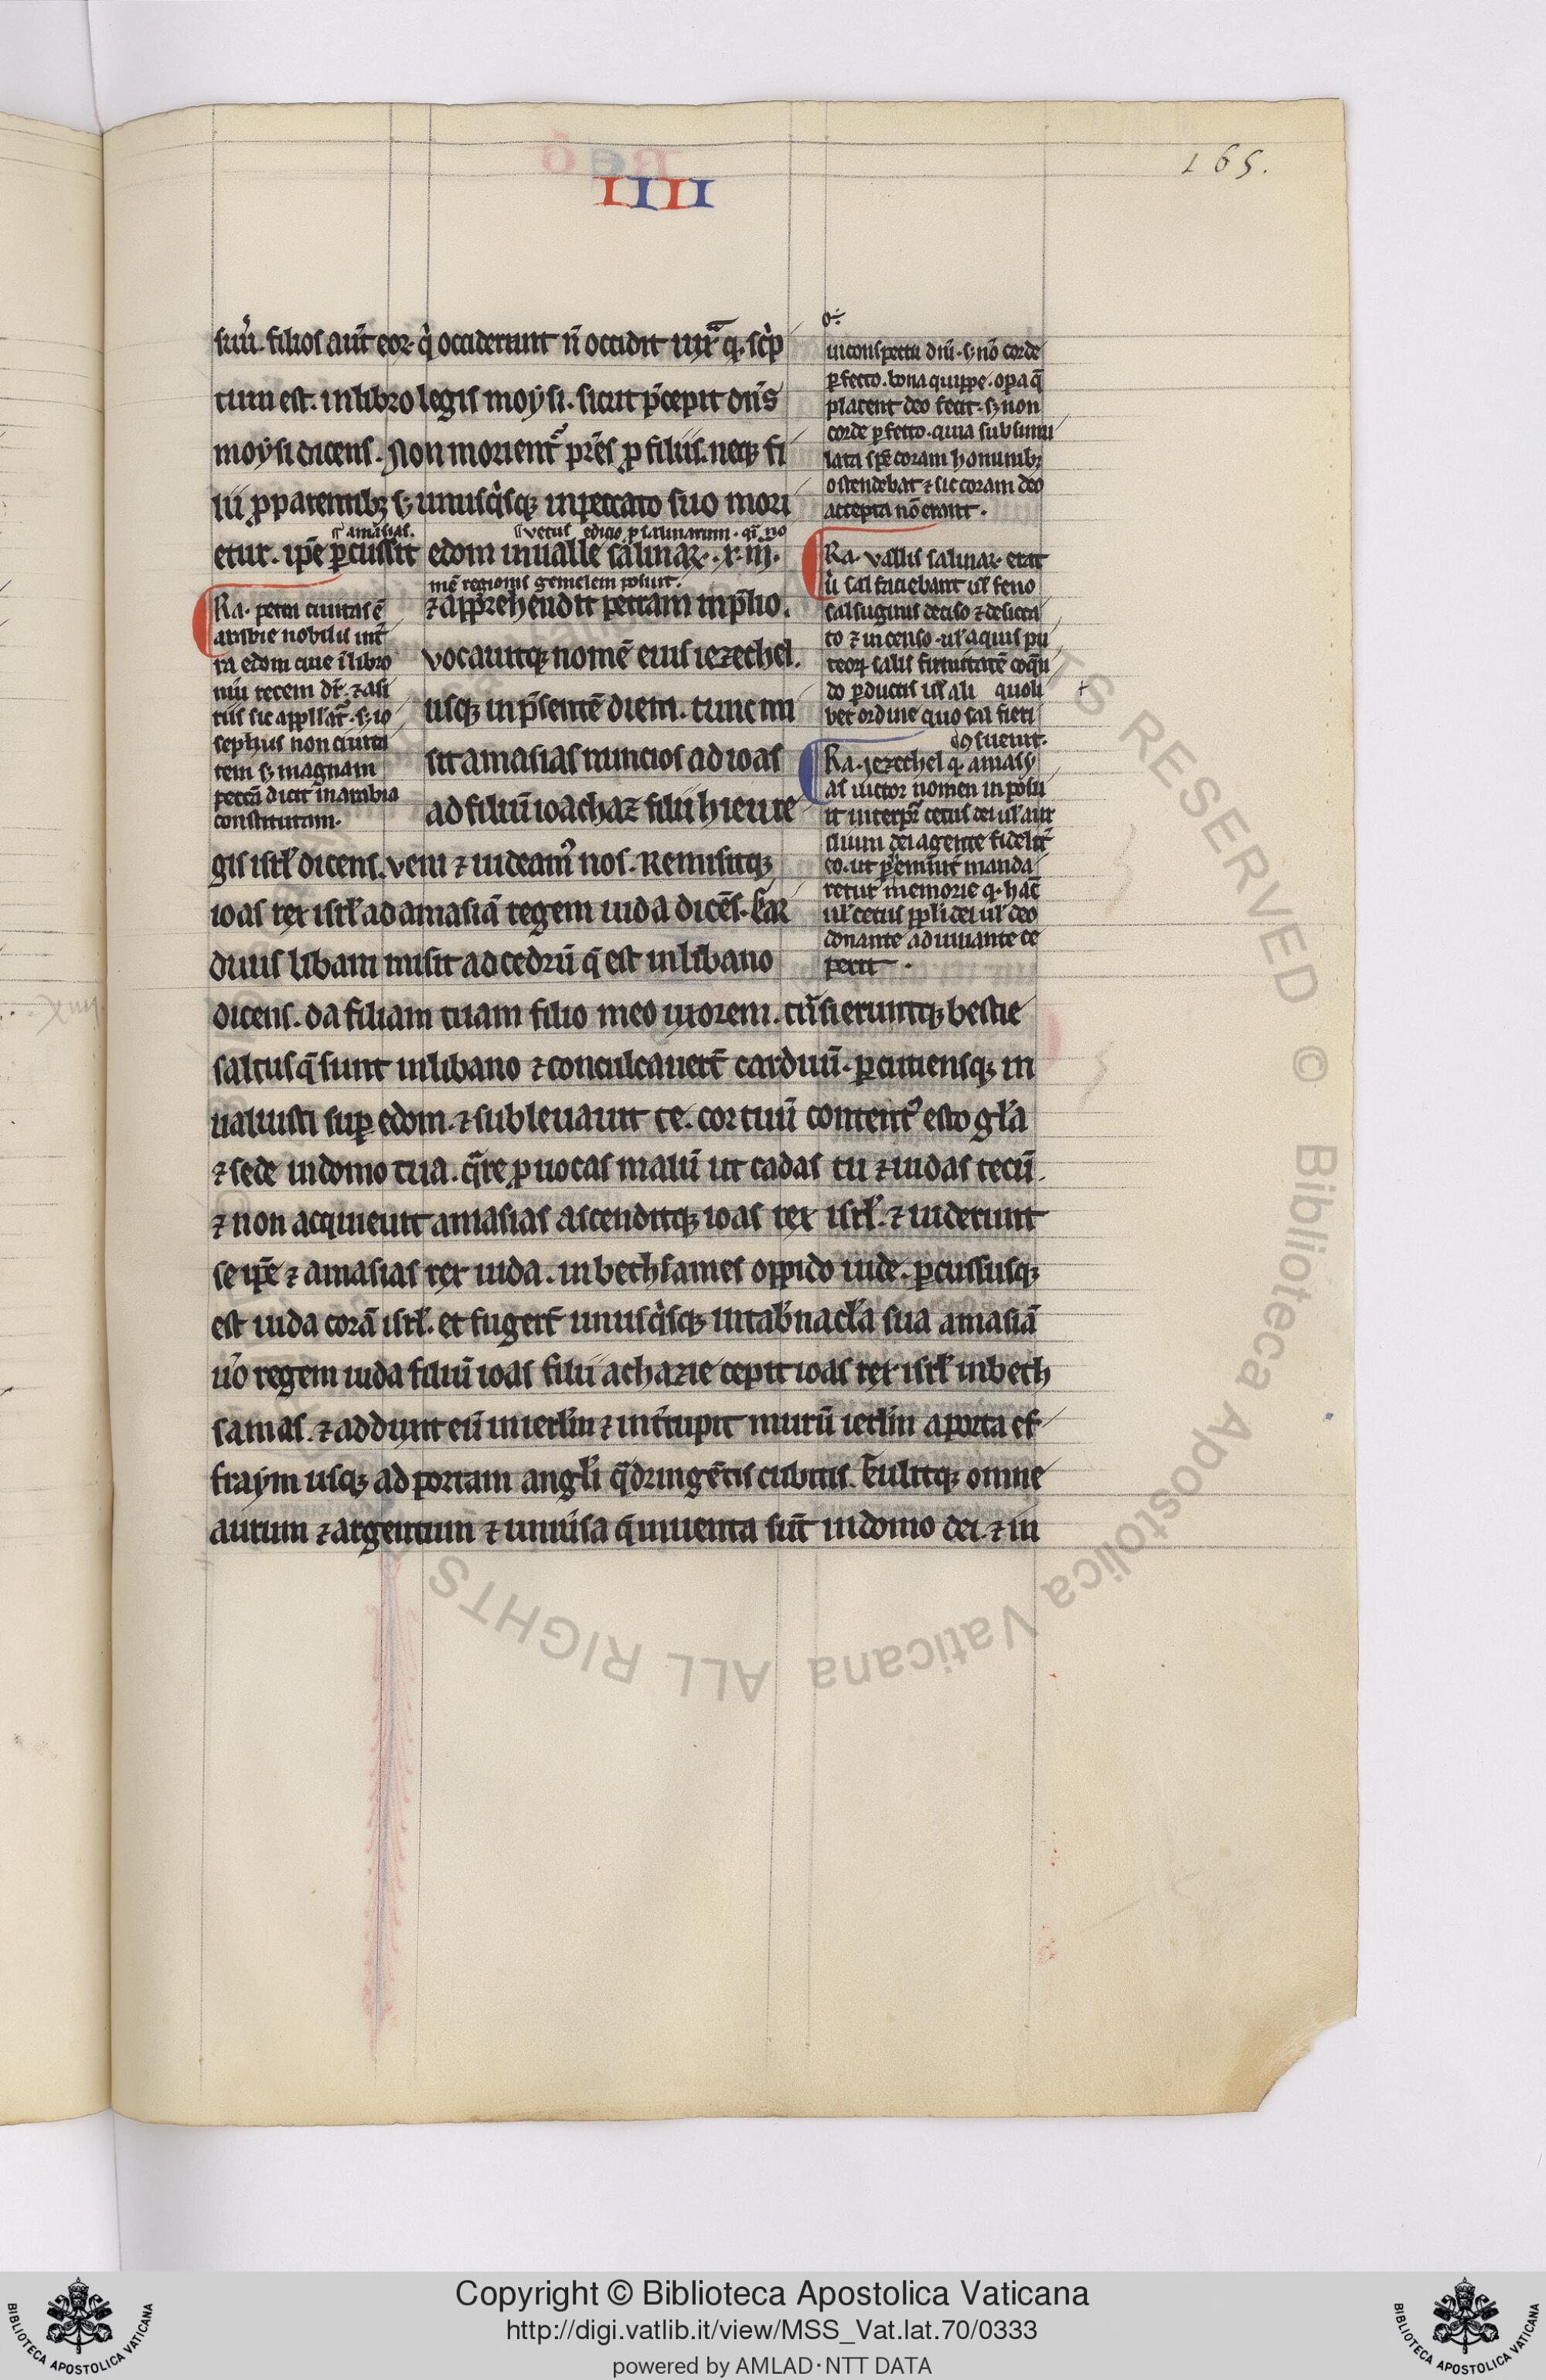 IIII
165.
suu. filios aut eor. q̇ occiderunt n̄ occidit iuxͣ q. sc̓p
tum est. in libro legis moysi. sicut p̄cepit dn̄s
moysi dicens. Non morient᷑ pr̄es ꝓ filiis. neqꝫ fi
lii ꝓ parentibꝫ sꝫ unusq̇sqꝫ in peccato suo mori
.s. amasias.
uetus edicio
etur. ip̄e ꝑcussit edom in ualle salinaꝝ. x. m̄.
mē regionis gemelem posuit.
⁊ apprehendit petram in p̄lio.
uocauitqꝫ nomē eius iezechel.
usqꝫ in p̄sentē diem. tunc mi
sit amasias nuncios ad ioas
ad filiū ioachaz filii hieu re
gis isrl̄ dicens. veni ⁊ uideamꝰ nos. Remisitqꝫ
ioas rex isrl̄ ad amasiā regem iuda dicēs. kar
duus libani misit ad cedrū q̄ est in libano
dicens. da filiam tuam filio meo uxorem. tn̄sieruntqꝫ bestie
saltus q̄ sunt in libano ⁊ conculcauert̄ carduū. ꝑcutiensqꝫ in
ualuisti suꝑ edom. ⁊ subleuauit te. cor tuū content᷒ esto gl̄a
⁊ sede in domo tua. q̄re ꝓuocas malū ut cadas tu ⁊ iudas tecū.
⁊ non acquieuit amasias ascenditqꝫ ioas rex isrl̄. ⁊ uiderunt
se ip̄e ⁊ amasias rex iuda. in bethsames oppido iude. ꝑcussusqꝫ
est iuda corā isrl̄. et fugert̄ unusq̇sqꝫ in tab̄nacl̄a sua amasiā
u̓o regem iuda filiū ioas filii achazie cepit ioas rex isrl̄ in beth
samas. ⁊ adduxit eū in ierlm̄ ⁊ int̄rupit murū ierlm̄ a porta ef
fraym usqꝫ ad portam angl̄i q̄dringētis cubitis. tulitqꝫ omne
aurum ⁊ argentum ⁊ uniu̓sa q̄ inuenta sūt in domo dei. ⁊ in
Ra. petra ciuitas ē
arabie nobilis int̄
ra edom que ī libro
nūi recem dr̄. ⁊ asi
riis sic appllat᷑. sꝫ io
sephus non ciuita
tem sꝫ magnam
petrā dicit in arabia
constitutam.
in conspectu dn̄i. sꝫ nō corde
ꝑfecto. bona quippe. opa q̄
placent deo fecit. sꝫ non
corde ꝑfecto. quia sub simu
lata spē coram hominibꝫ
ostendebat ⁊ sic coram deo
accepta nō erant.
Ra. vallis salinaꝝ. erat
u̇ sal faciebant ul̄ feno
salsuginis deciso ⁊ desicca
to ⁊ incenso. ul̄ aquis pu
teoꝝ salis firmitatē coq̄n
do ꝑductis ul̄ ali quoli
bet ordine quo sal fieri
ꝯsueuit.
Ra. iezechel q. amasy
as uictor nomen inposu
it interpr̄ cetus dei ul̄ aux
ilium dei agente fidelit᷑
retur memorie q. hāc
ul̄ cetus ppl̄i dei ul̄ deo
donante adiuuante ce
perit.
Copyright © Biblioteca Apostolica Vaticana
http://digi.vatlib.it/view/MSS_Vat.lat.70/0333
powered by AMLAD·NTT DATA
BIBLIOTECA APOSTOLICA VATICANA
BIBLIOTECA APOSTOLICA VATICANA
© Biblioteca Apostolica Vaticana ALL RIGHTS RESERVED